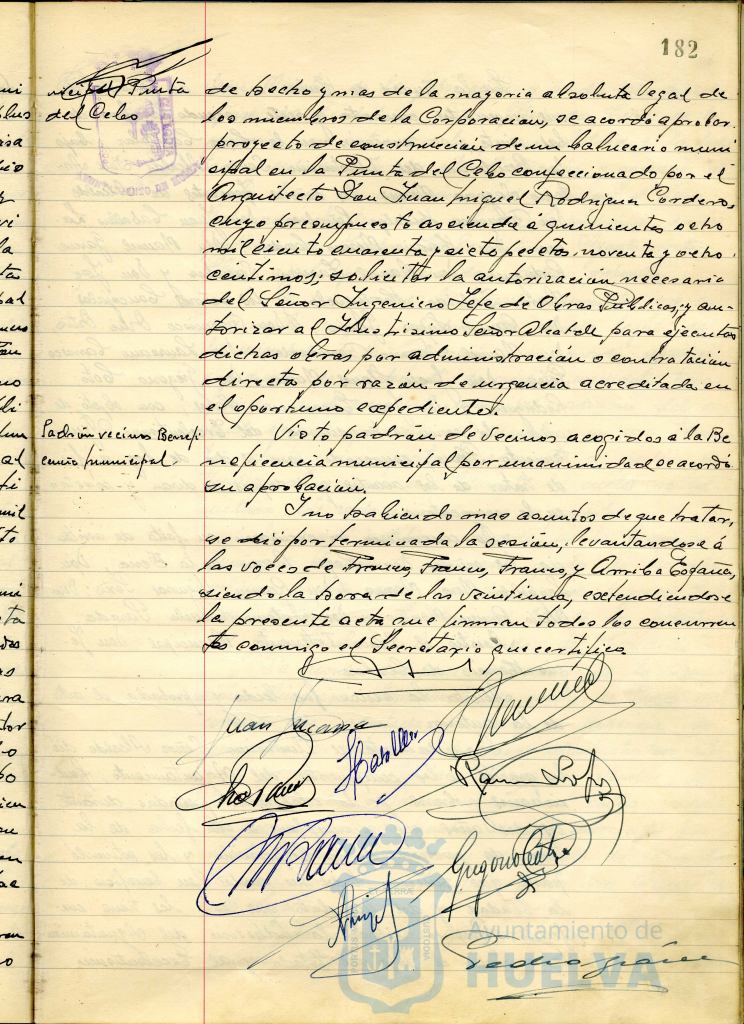 182
nicipal Punta
del Cebo
de hecho y mas de la mayoria absoluta legal de
los miembros de la Corporación, se acordó aprobar
proyecto de construcción de un balneario muni
cipal en la Punta del Cebo confeccionado por el
Arquitecto Don Juan Miguel Rodriguez Cordero,
cuyo presupuesto asciende á quinientas ocho
mil ciento cuarenta y siete pesetas, noventa y ocho
centimos; solicitar la autorización necesaria
del Señor Ingeniero Jefe de Obras Públicas; y au-
torizar al Ilustrisimo Señor Alcalde para ejecutar
dichas obras por administración o contratación
directa por razón de urgencia acreditada en
el oportuno expediente.
Padrón vecinos Benefi
cencia municipal.
Visto padrón de vecinos acogidos á la Be
neficencia municipal por unanimidad se acordó
su aprobación.
Y no habiendo mas asuntos de que tratar,
se dió por terminada la sesión, levantandose á
las voces de Franco, Franco, Franco, y Arriba España,
siendo la hora de las veintiuna, extendiendose
la presente acta que firman todos los concurren
tes conmigo el Secretario que certifico.
Juan
Ramon Lopez
Gregorio
Pedro
Ayuntamiento de
HUELVA